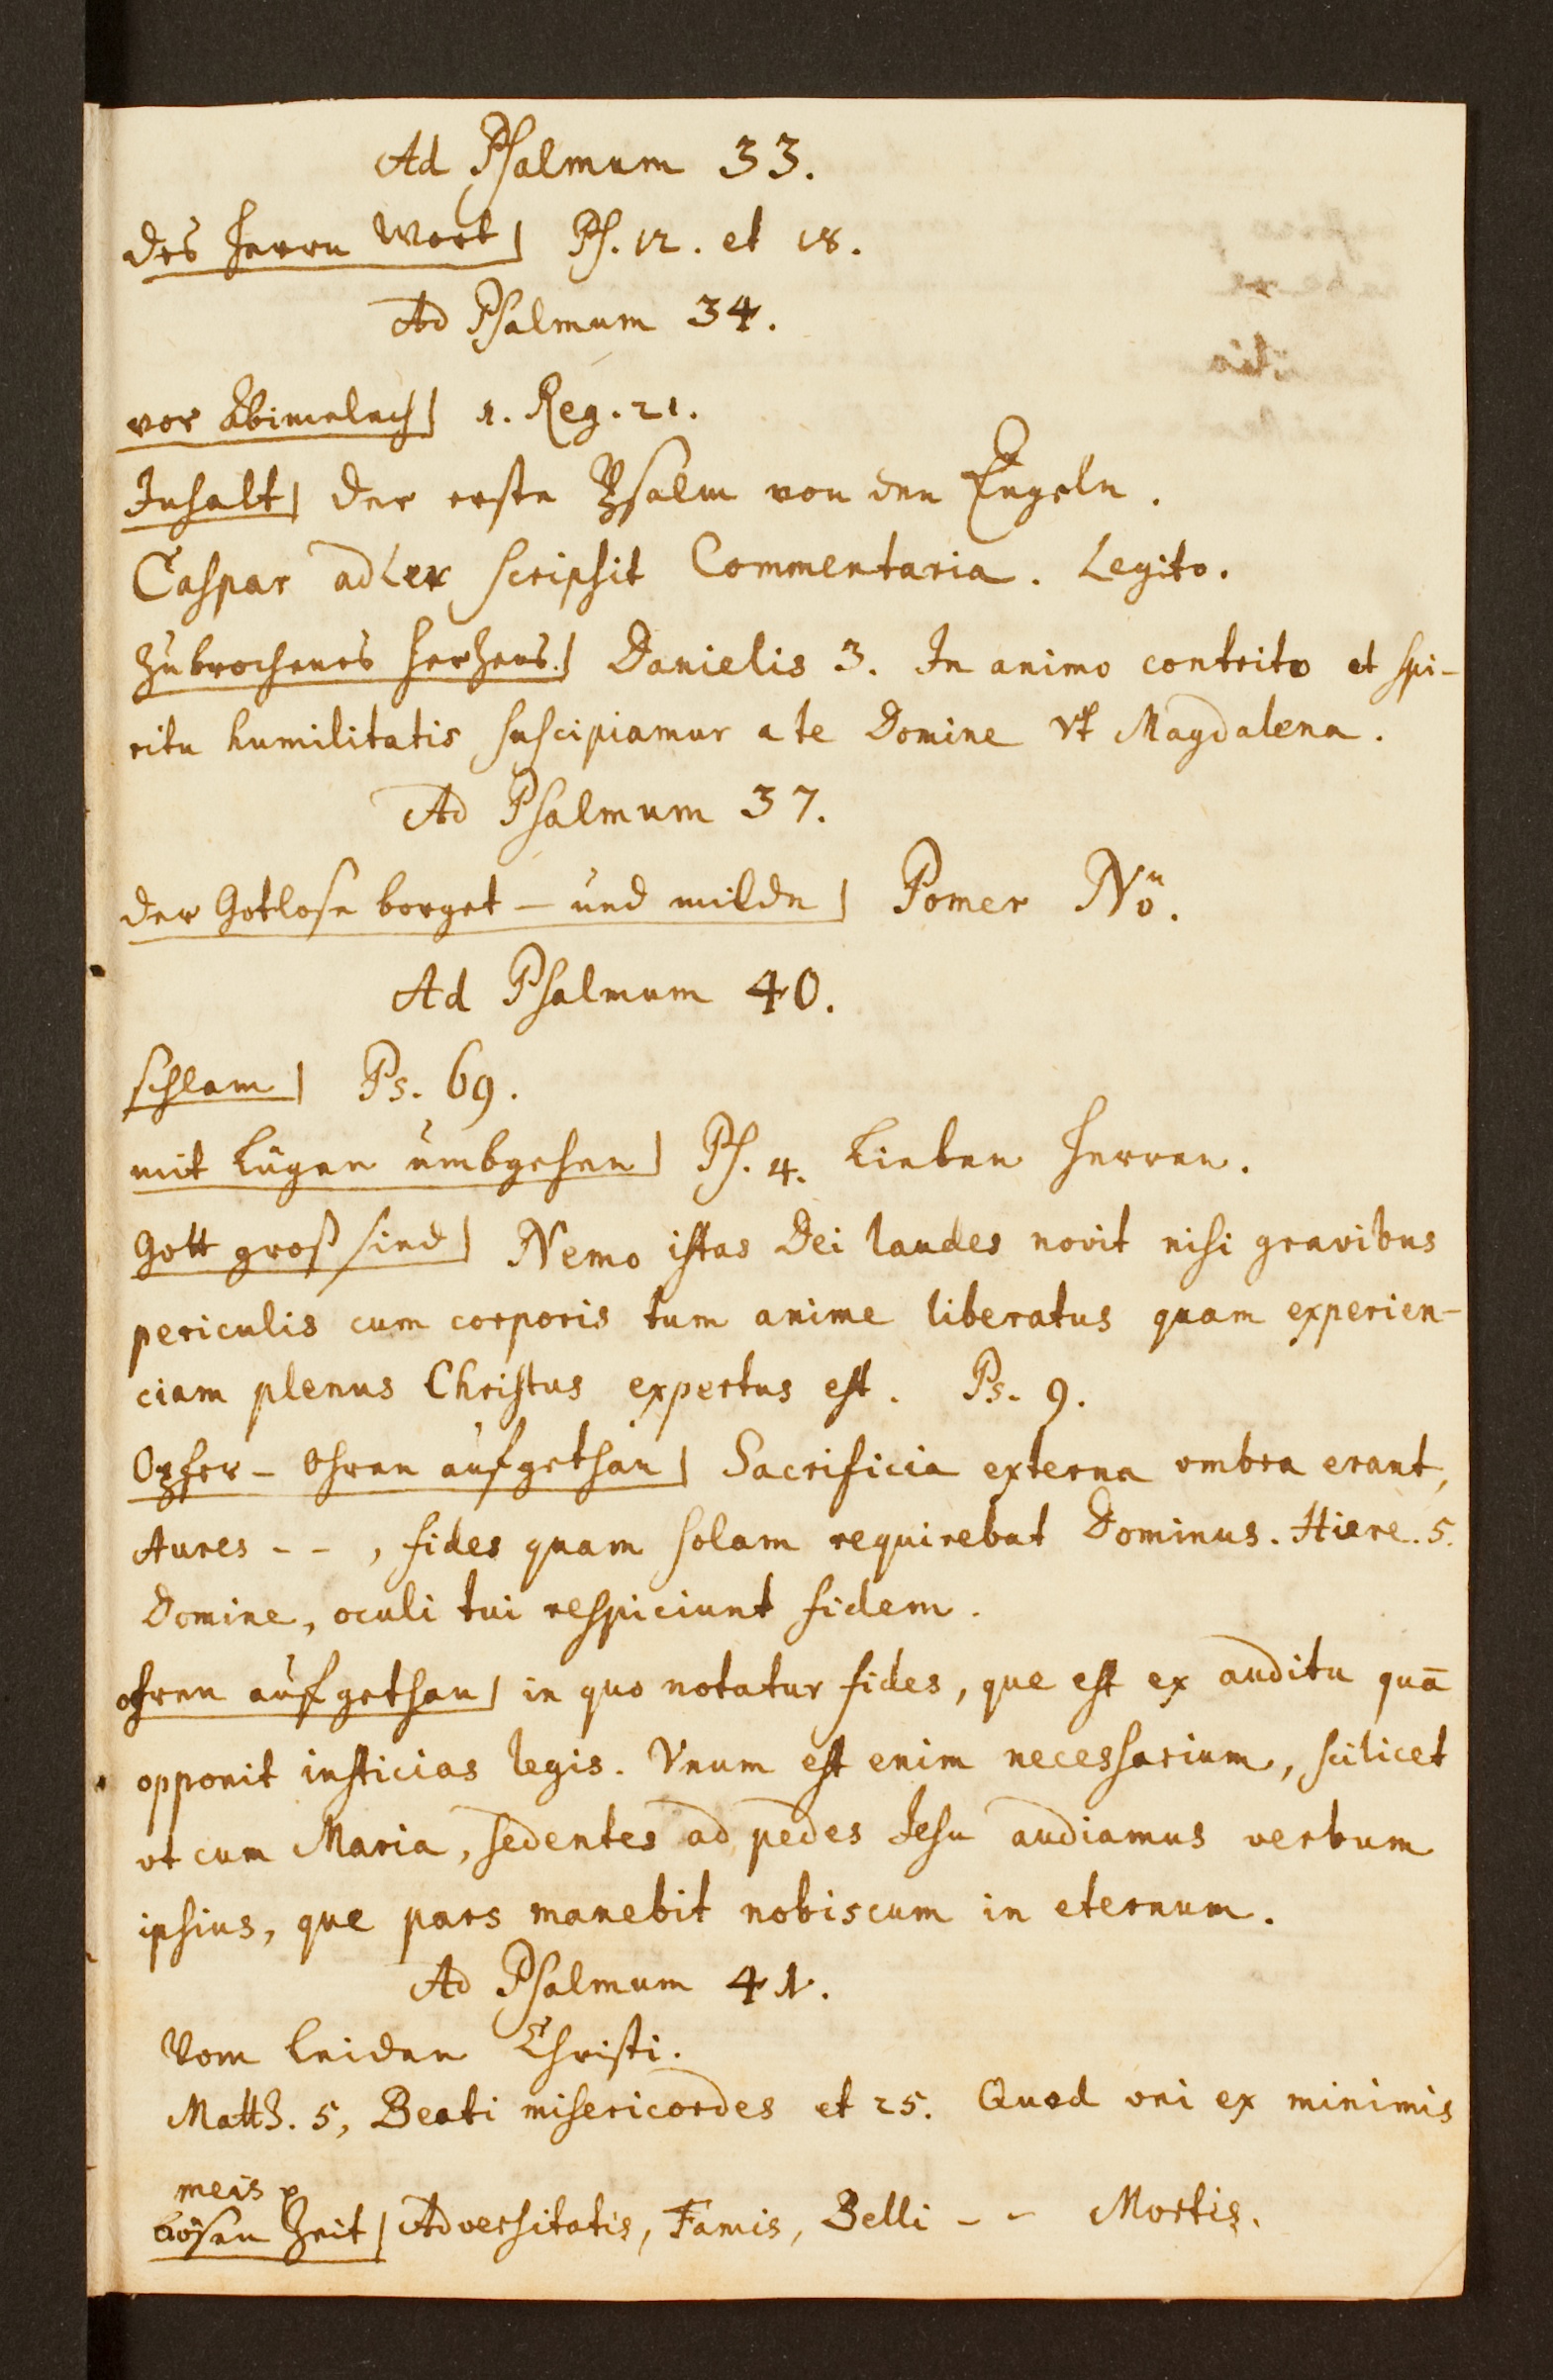 Ad Psalmum 33.
des Herrn Wort] Ps. 12. et 18.
Ad Psalmum 34.
vor Abimelech] 1. Reg. 21.
Inhalt] der erste Psalm von den Engeln.
Caspar adler scripsit Commentaria. Legito.
Zubrochenes Herzens.] Danielis 3. In animo contrito et spi-
ritu humilitatis suscipiamur a te Domine vt Magdalena.
Ad Psalmum 37.
der Gotlose borget – und milde] Pomer
Ad Psalmum 40.
schlam] Ps. 69.
mit Lügen umbgehen] Ps. 4. Lieben Herren.
Gott groß sind] Nemo istas Dei laudes novit nisi gravibus
periculis cum corporis tum anime liberatus quam experien-
ciam plenus Christus expertus est. Ps. 9.
Opfer – Ohren aufgethan] Sacrificia externa ombra erant,
Aures - - , fides quam solam requirebat Dominus. Hiere. 5.
Domine, oculi tui respiciunt fidem.
ohren aufgethan] in quo notatur fides, que est ex auditu quā
opponit iusticias legis. Vnum est enim necessarium, scilicet
ut cum Maria, sedentes ad pedes Jesu audiamus verbum
ipsius, que pars manebit nobiscum in eternum.
Ad Psalmum 41.
Vom leiden Christi.
Matth. 5, Beati misericordes et 25. Quod vni ex minimis
meis
bösen Zeit] Adversitatis, Famis, Belli - - Mortis.